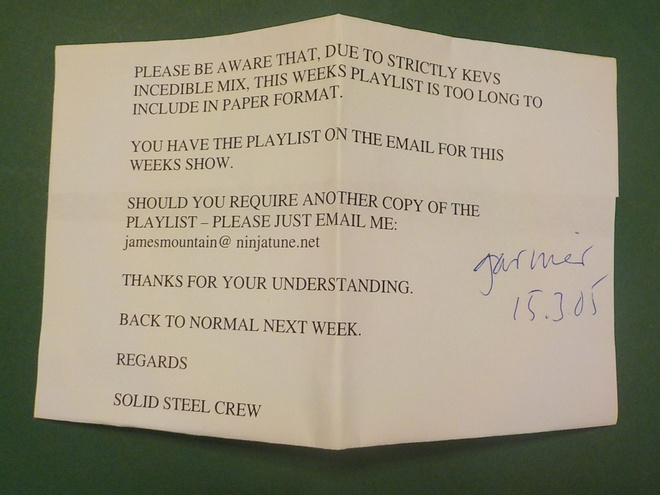 PLEASE BE AWARE THAT, DUE TO STRICTLY KEVS
INCEDIBLE MIX, THIS WEEKS PLAYLIST IS TOO LONG TO
INCLUDE IN PAPER FORMAT.
YOU HAVE THE PLAYLIST ON THE EMAIL FOR THIS
WEEKS SHOW.
SHOULD YOU REQUIRE ANOTHER COPY OF THE
PLAYLIST – PLEASE JUST EMAIL ME:
jamesmountain@ ninjatune.net
THANKS FOR YOUR UNDERSTANDING.
BACK TO NORMAL NEXT WEEK.
REGARDS
SOLID STEEL CREW
garnier
15.3.05